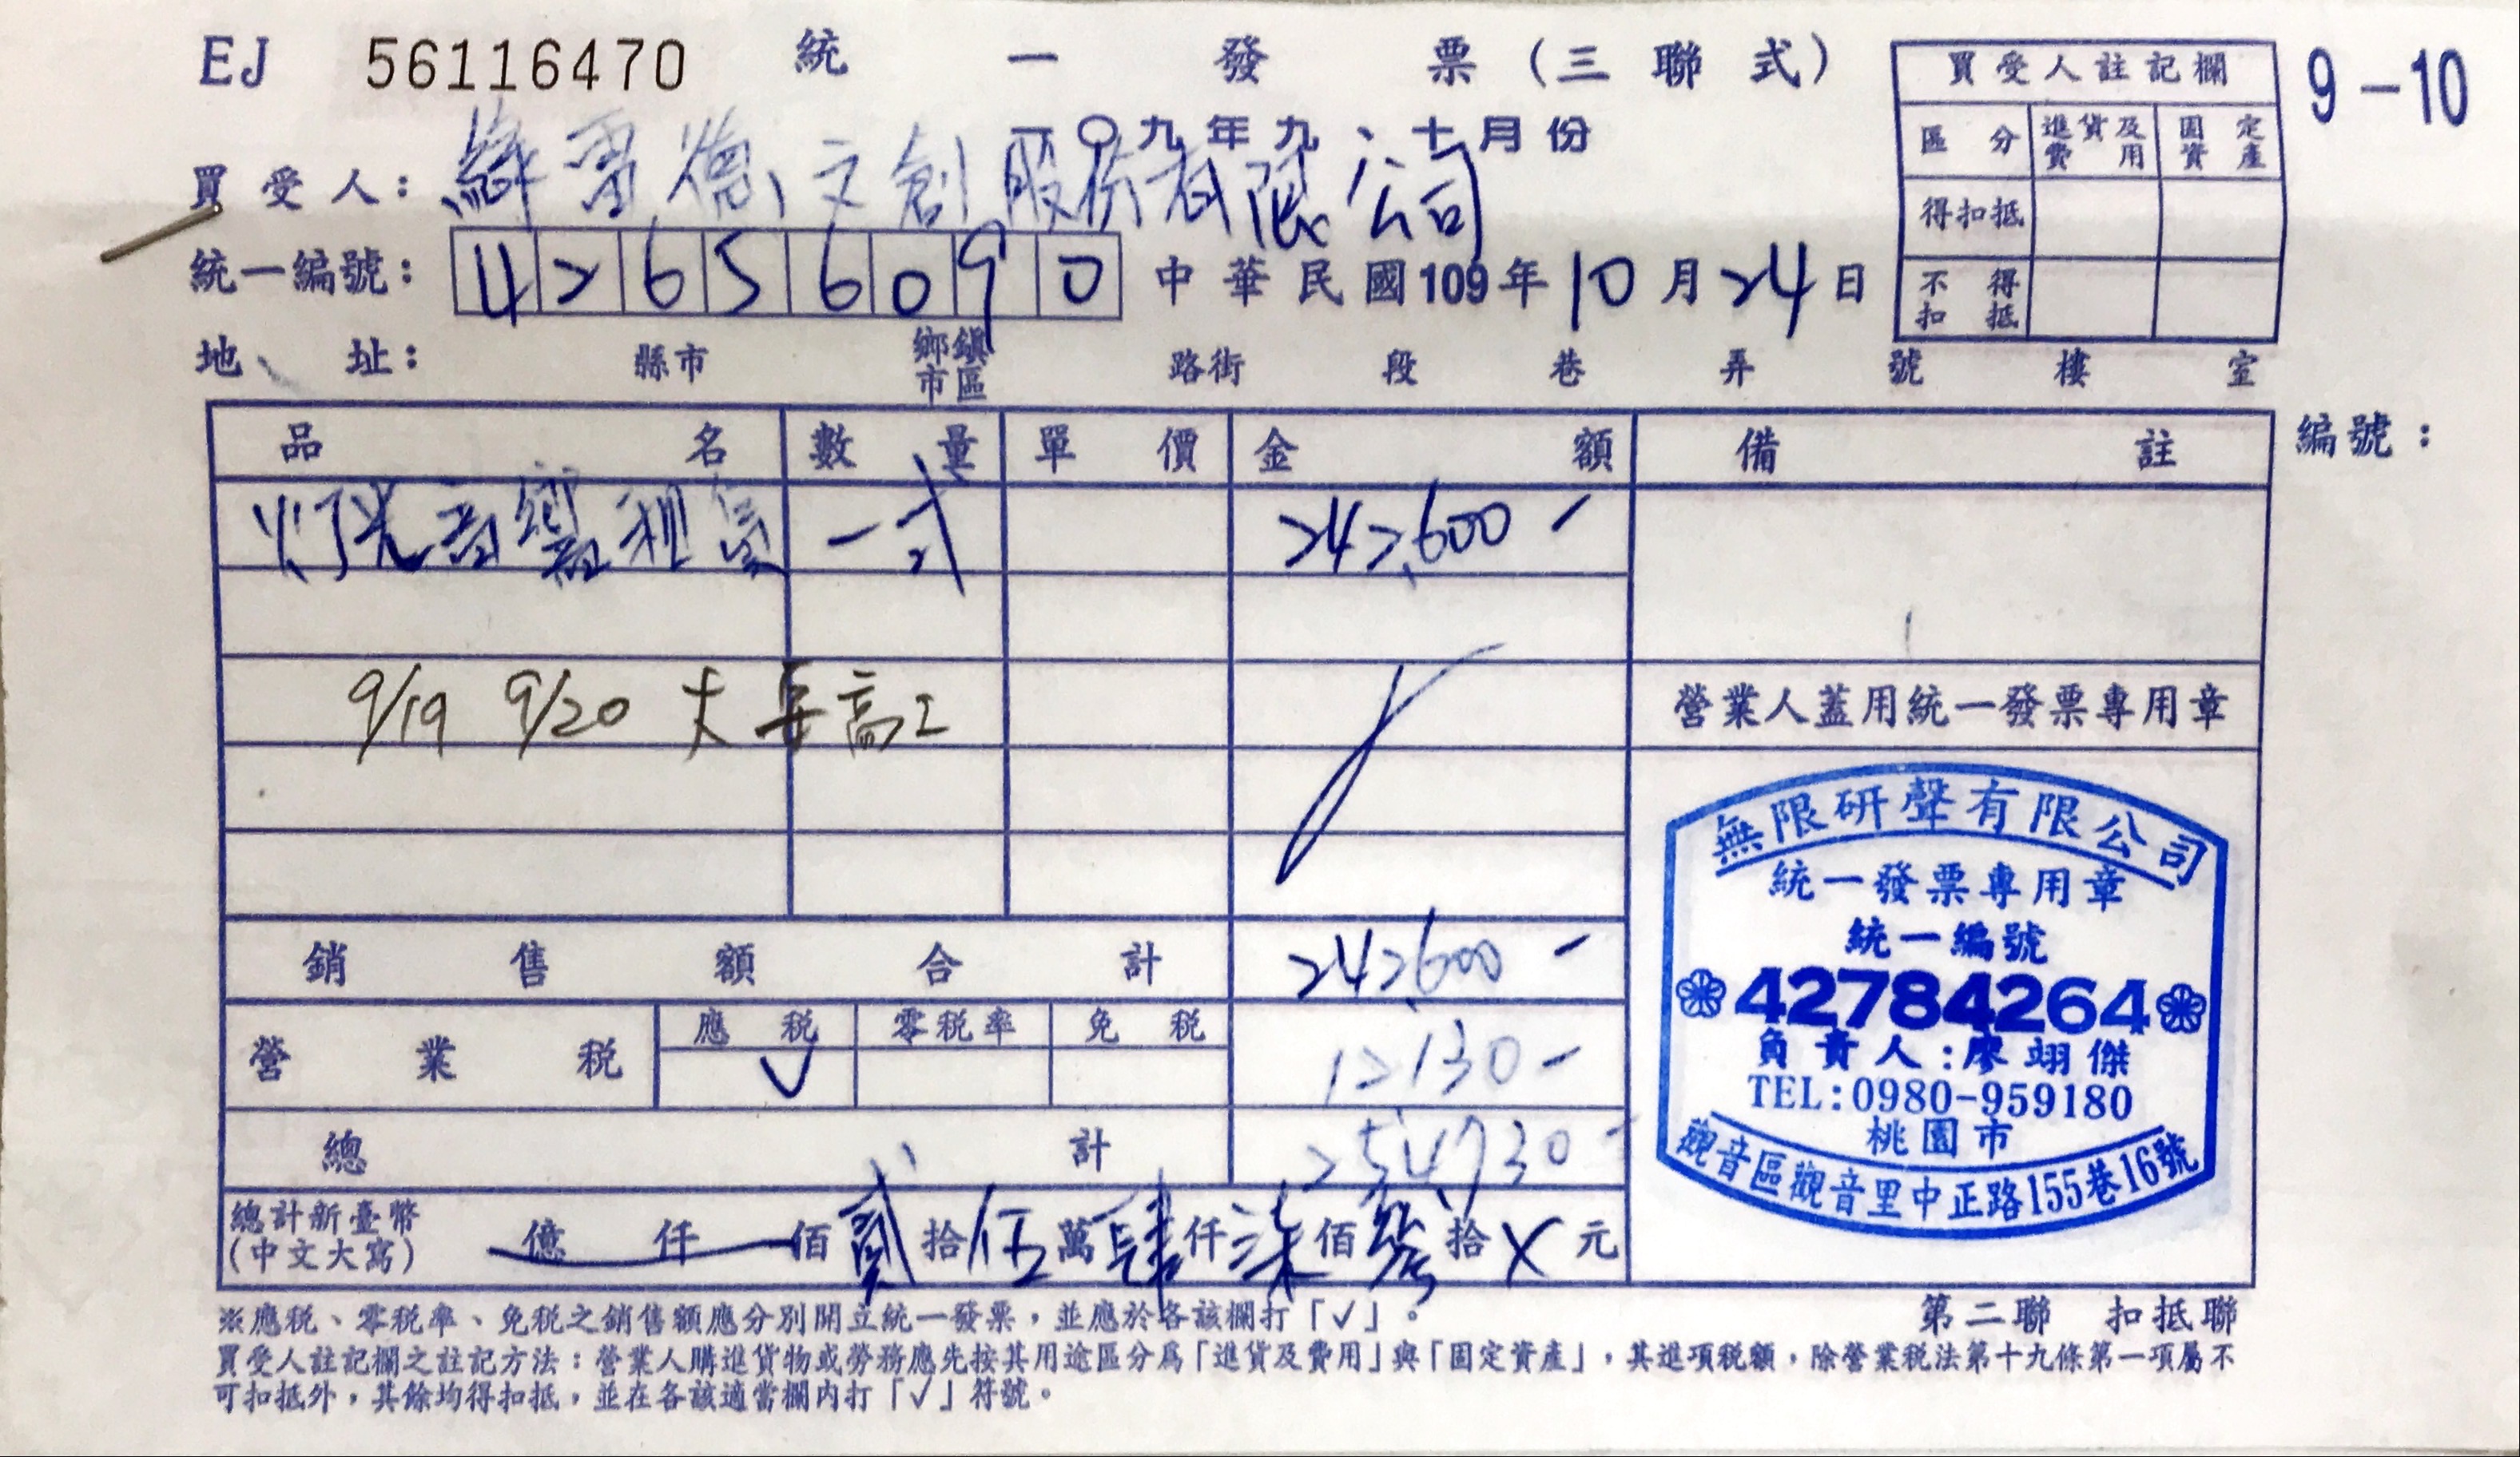 EJ 56116470 統一發票(三聯式)
9-10
一〇九年九、十月份
買受人: 綠雷德文創股份有限公司
統一編號: 42656090 中華民國109年10月24日
地址: 縣市 鄉鎮市區 路街 段 巷 弄 號 樓 室
買受人註記欄
區分 進貨及費用 固定資產
得扣抵
不得扣抵
品名 數量 單價 金額 備註 編號:
灯光音響租賃 一式 242,600-
9/19 9/20 大安高工
營業人蓋用統一發票專用章
銷售額合計 242,600-
營業稅 應稅 零稅率 免稅 12130-
✓
總計 254730-
總計新臺幣(中文大寫) 億 仟 佰 貳拾伍萬肆仟柒佰參拾X元
無限研聲有限公司
統一發票專用章
統一編號
42784264
負責人:廖翊傑
TEL:0980-959180
桃園市
觀音區觀音里中正路155巷16號
※應稅、零稅率、免稅之銷售額應分別開立統一發票,並應於各該欄打「✓」。
第二聯 扣抵聯
買受人註記欄之註記方法:營業人購進貨物或勞務應先按其用途區分為「進貨及費用」與「固定資產」,其進項稅額,除營業稅法第十九條第一項屬不
可扣抵外,其餘均得扣抵,並在各該適當欄內打「✓」符號。